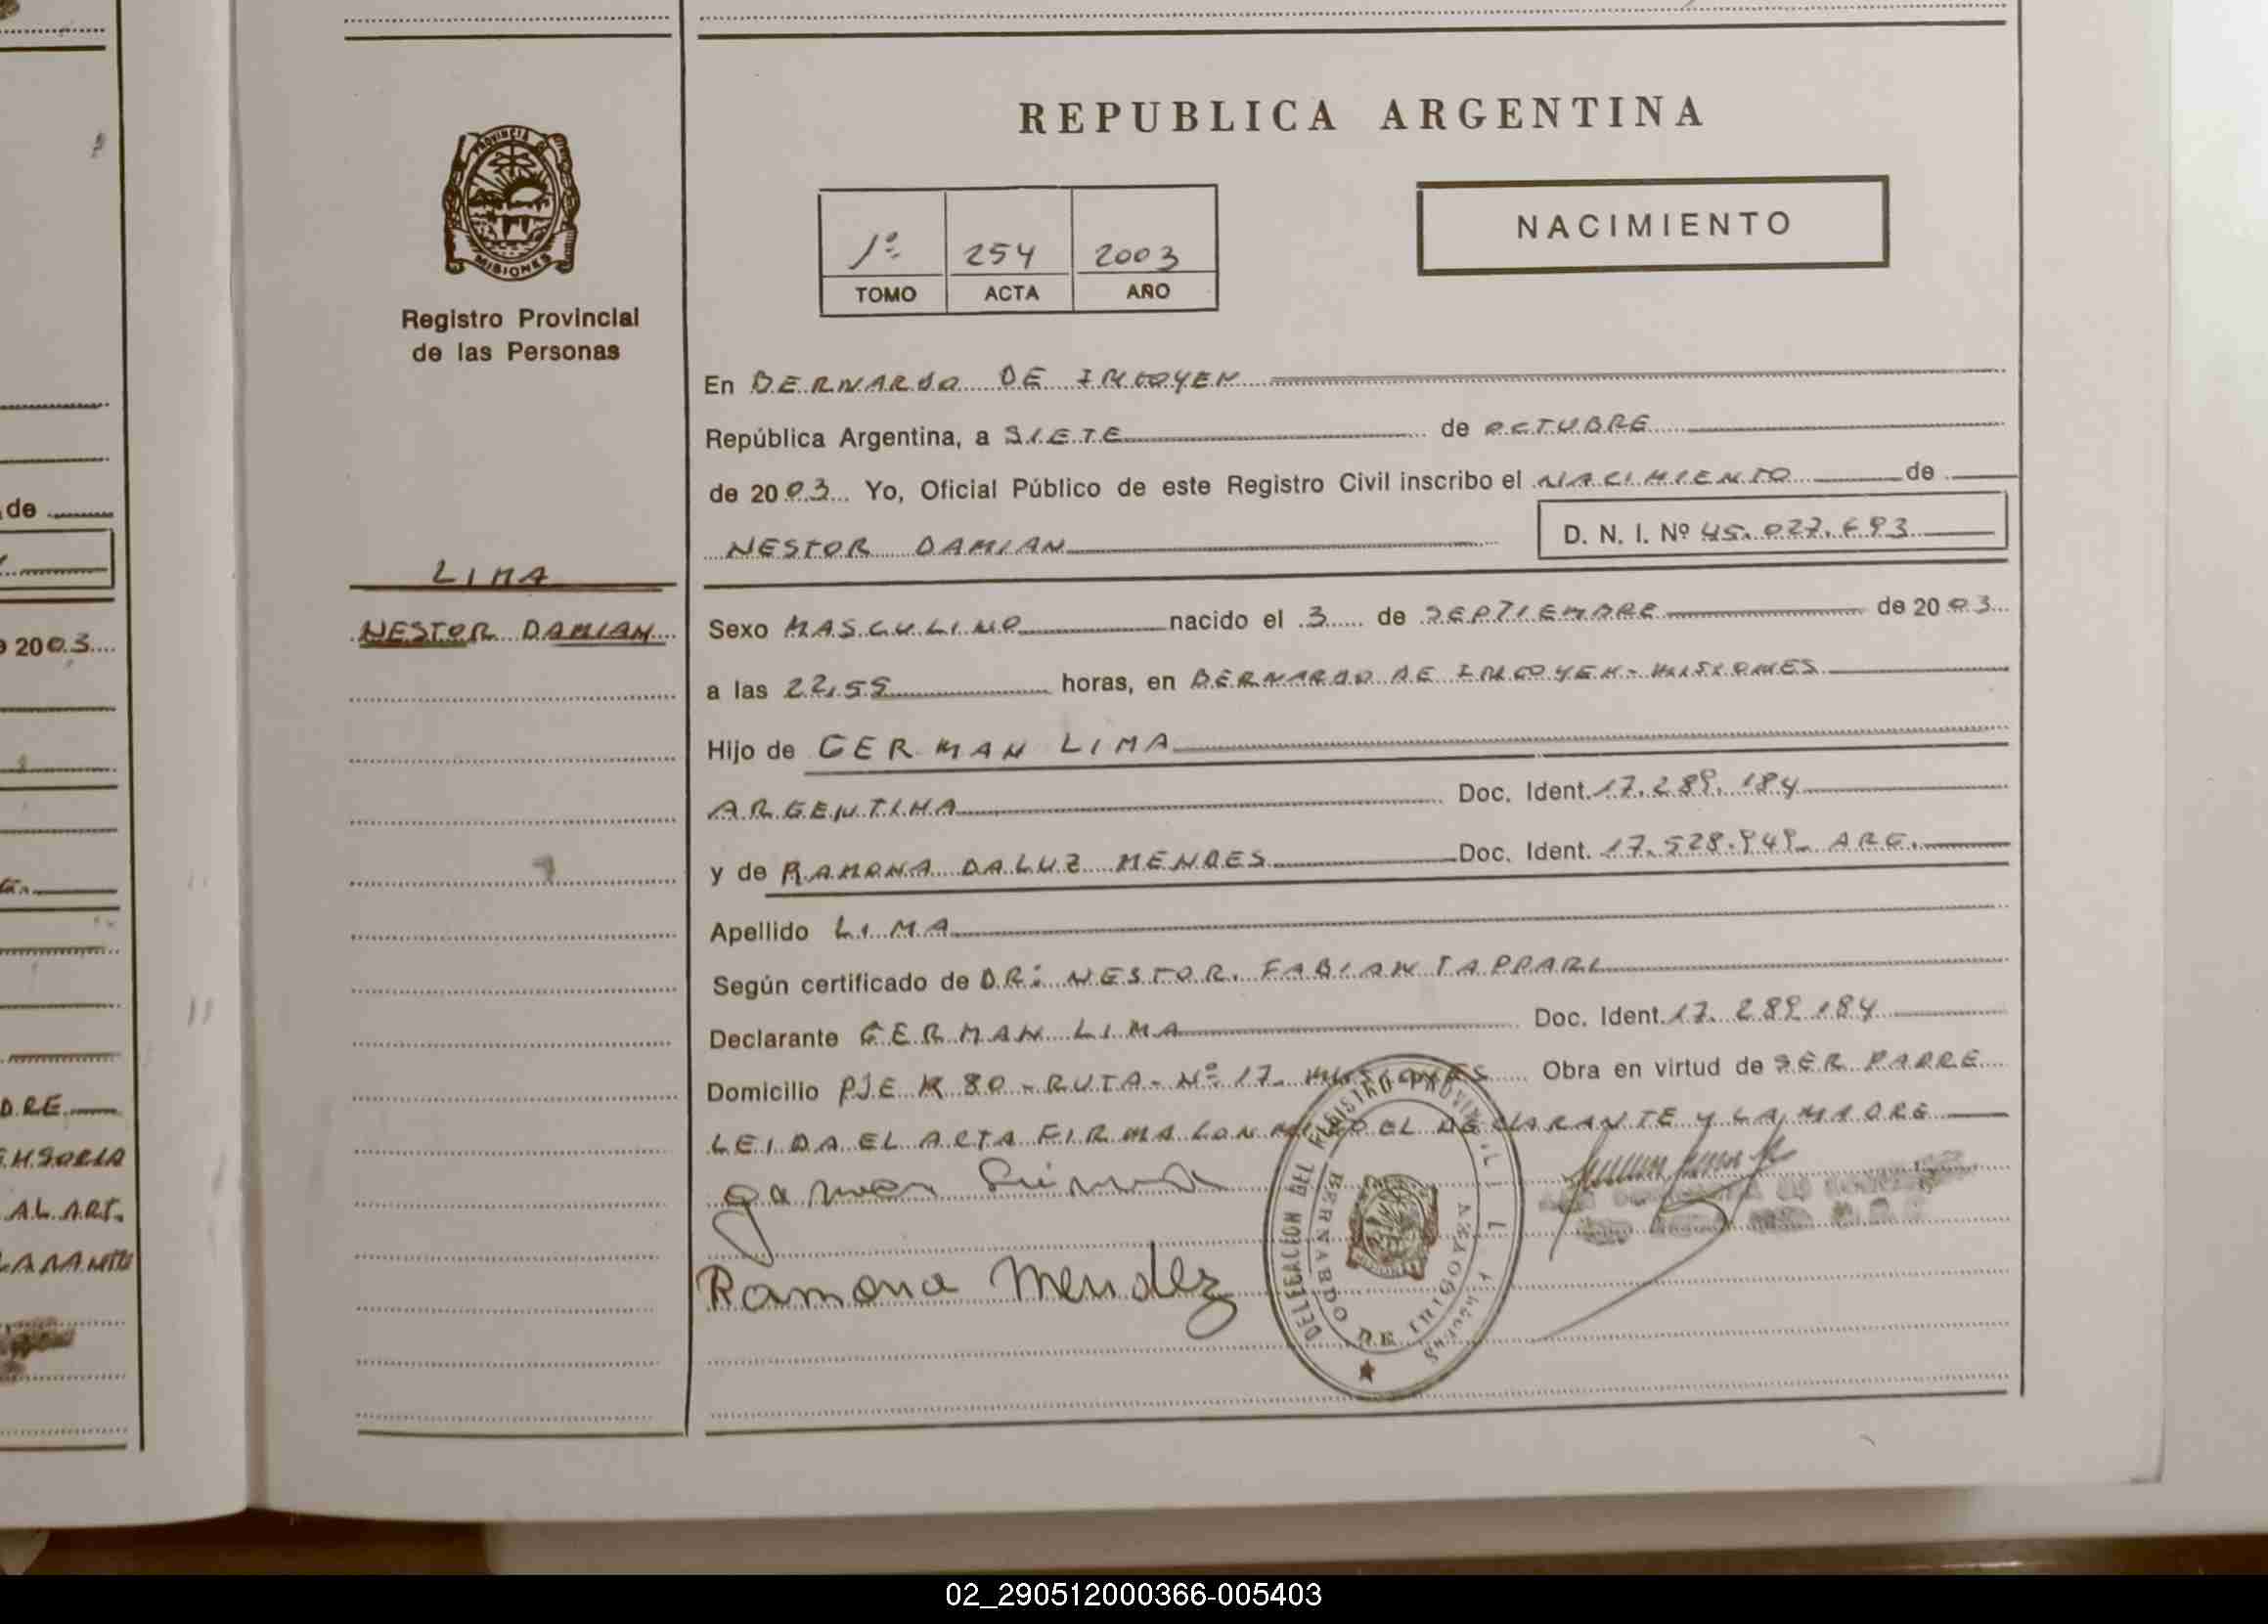 REPUBLICA ARGENTINA
PROVINCIA DE
MISIONES
Registro Provincial
de las Personas
1º 254 2003
TOMO ACTA AÑO
NACIMIENTO
En BERNARDO DE IRIGOYEN
República Argentina, a SIETE de OCTUBRE
de 2003 Yo, Oficial Público de este Registro Civil inscribo el NACIMIENTO de
NESTOR DAMIAN D. N. I. Nº 45.027.693
LIMA
NESTOR DAMIAN
Sexo MASCULINO nacido el 3 de SEPTIEMBRE de 2003
a las 22,55 horas, en BERNARDO DE IRIGOYEN - MISIONES
Hijo de GERMAN LIMA
ARGENTINA Doc. Ident. 17.289.184
y de RAMONA DALUZ MENDES Doc. Ident. 17.528.949 ARG.
Apellido LIMA
Según certificado de DR: NESTOR FABIAN TAPPARI
Declarante GERMAN LIMA Doc. Ident. 17.289.184
Domicilio PJE K 80 - RUTA - Nº 17 MISIONES Obra en virtud de SER PADRE
LEIDA EL ACTA FIRMA CON MIGO EL DECLARANTE Y LA MADRE
german Lima
Ramona Mendez
DELEGACION DEL REGISTRO PROVINCIAL
BERNARDO DE IRIGOYEN
de
2003
DRE
AL ART.
02_290512000366-005403